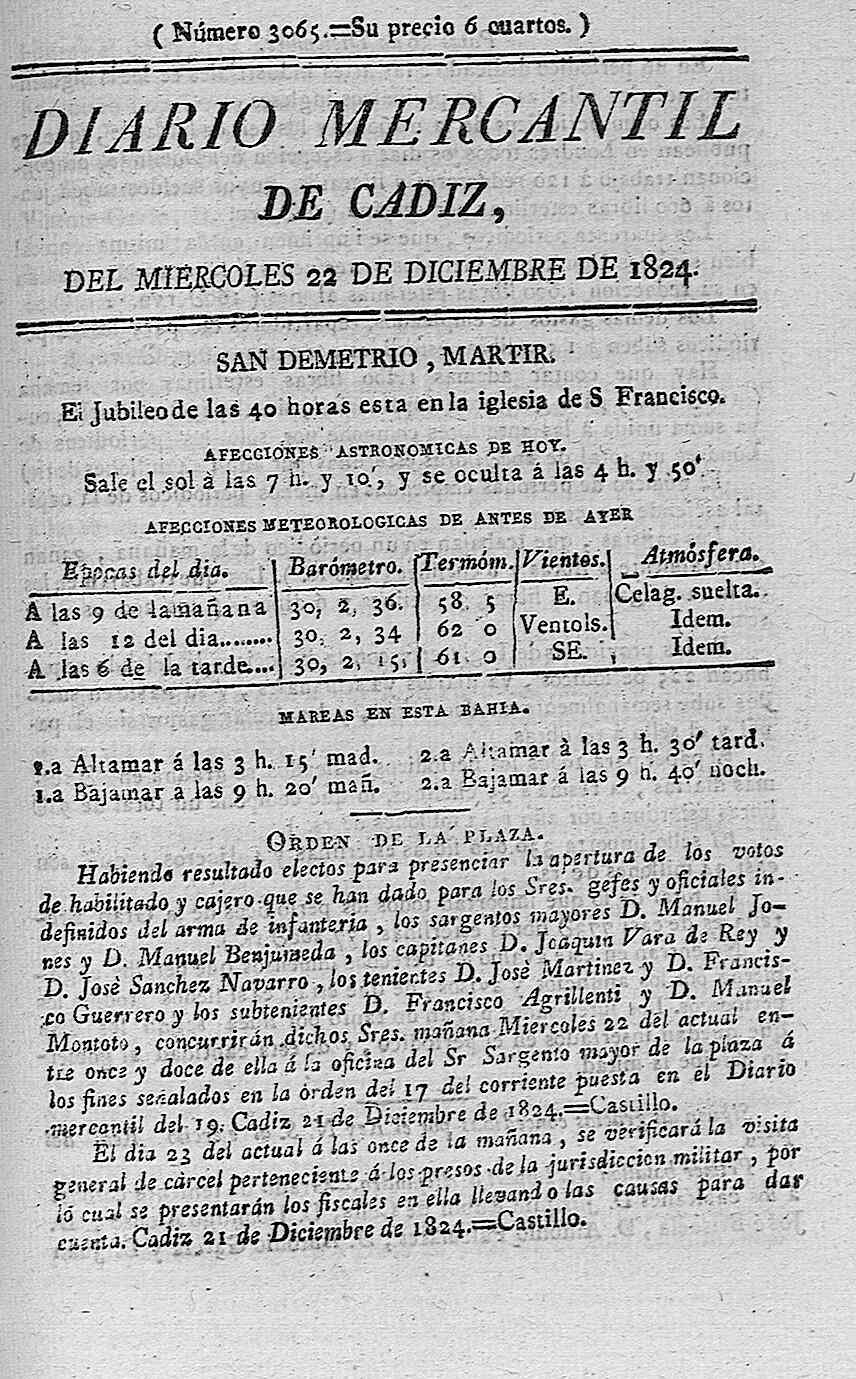 ( Número 3065.=Su precio 6 cuartos. )
DIARIO MERCANTIL
DE CADIZ,
DEL MIERCOLES 22 DE DICIEMBRE DE 1824.
SAN DEMETRIO, MARTIR.
El Jubileo de las 40 horas esta en la iglesia de S Francisco.
AFECCIONES ASTRONOMICAS DE HOY.
Sale el sol à las 7 h. y 10', y se oculta á las 4 h. y 50'
AFECCIONES METEOROLOGICAS DE ANTES DE AYER
Epocas del dia. Barómetro. Termóm. Vientos. Atmósfera.
A las 9 de la mañana 30, 2, 36. 58 5 E. Celag. suelta.
A las 12 del dia........ 30, 2, 34 62 0 Ventols. Idem.
A las 6 de la tarde.... 30, 2, 15. 61. 0 SE. Idem.
MAREAS EN ESTA BAHIA.
1.a Altamar á las 3 h. 15' mad. 2.a Altamar à las 3 h. 30' tard.
1.a Bajamar a las 9 h. 20' mañ. 2.a Bajamar á las 9 h. 40' noch.
ORDEN DE LA PLAZA.
Habiendo resultado electos para presenciar la apertura de los votos
de habilitado y cajero que se han dado para los Sres. gefes y oficiales in-
definidos del arma de infanteria, los sargentos mayores D. Manuel Jo-
nes y D. Manuel Benjumeda, los capitanes D. Joaquin Vara de Rey y
D. Josè Sanchez Navarro, los tenientes D. Josè Martinez y D. Francis-
co Guerrero y los subtenientes D. Francisco Agrillenti y D. Manuel
Montoto, concurrirán dichos Sres. mañana Miercoles 22 del actual en-
tre once y doce de ella á la oficina del Sr Sargento mayor de la plaza á
los fines señalados en la órden del 17 del corriente puesta en el Diario
mercantil del 19. Cadiz 21 de Diciembre de 1824.=Castillo.
El dia 23 del actual á las once de la mañana, se verificará la visita
general de carcel perteneciente á los presos de la jurisdiccion militar, por
ló cual se presentarán los fiscales en ella llevando las causas para dar
cuenta. Cadiz 21 de Diciembre de 1824.=Castillo.